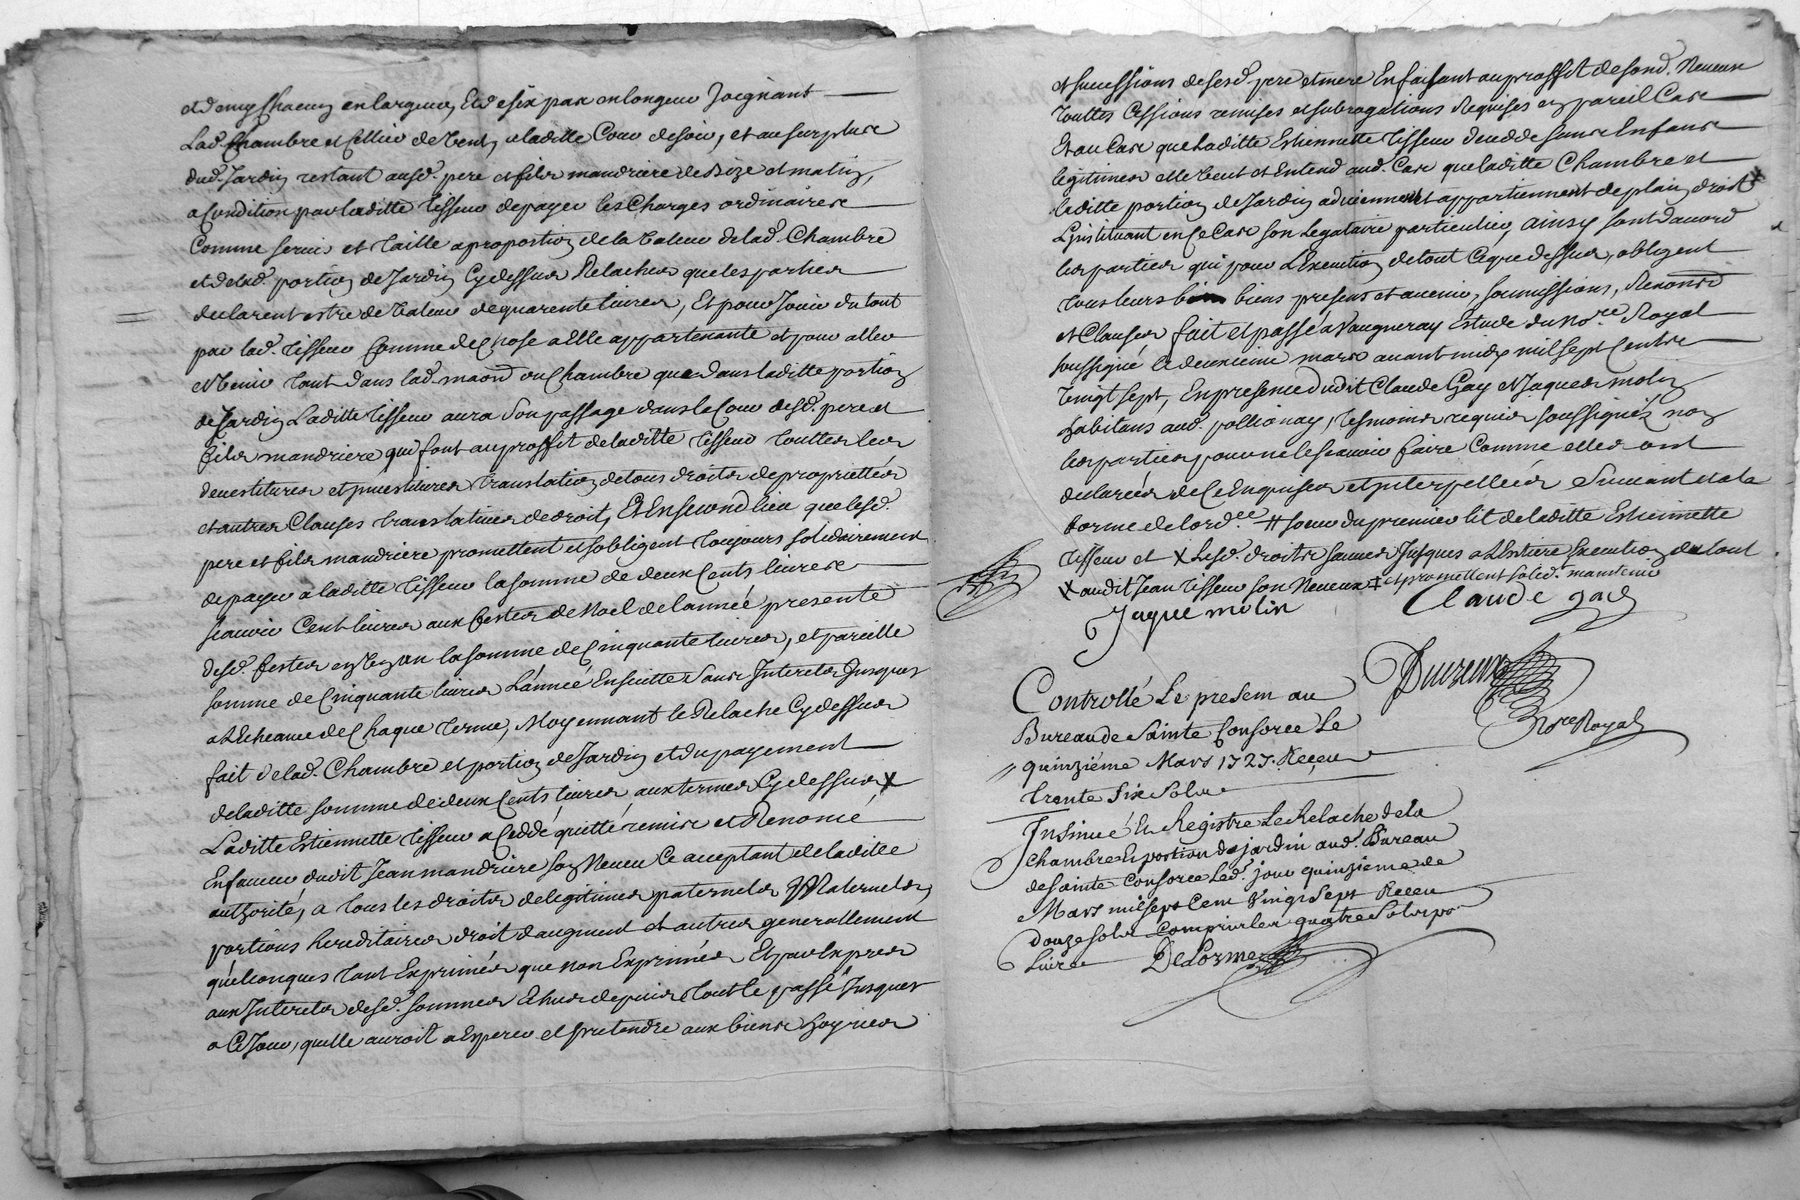 et demy chacun en largeur, Et de six pas en longeur Joignant
Lad. Chambre et Cellier de vent, a laditte Cour de soir, et au surplus
dud. Jardin restant ausd. pere et fils mandriere de bize et matin,
a Condition par laditte Tisseur de payer les Charges ordinaires
Comme servis et Taille a proportion de la valeur de lad. Chambre
et de lad. portion de Jardin Cy dessus Relachés que les parties
declarent estre de valeur de quarente livres, Et pour Jouir du tout
par lad. Tisseur Comme de Chose a Elle appartenante et pour aller
et venir tant dans lad. maon ou Chambre que dans laditte portion
de Jardin Laditte Tisseur aura Son passage dans la Cour desd. pere et
fils mandriere qui font au proffit de laditte Tisseur Touttes les
devestitures et investitures translation de tous droits de proprietté
et autres Clauses translatives de droit, Et En second lieu que lesd.
pere et fils mandriere promettent et s'obligent Toujours solidairement
de payer a laditte Tisseur la somme de deux Cents livres
scavoir Cent livres aux festes de Noel de l'année presente
desd. festes en un an la somme de Cinquante livres, et pareille
somme de Cinquante livres L'année Ensuitte Sans Interets Jusques
a L'Echeance de Chaque terme, Moyennant le Relache Cy dessus
fait de lad. Chambre et portion de Jardin et du payement
de laditte somme de deux Cents livres aux termes Cy dessus X
Laditte Estiennette Tisseur a Ceddé quitté remis et Renoncé
En faveur dudit Jean mandriere son Neveu Ce acceptant de laditte
authorité, a tous les droits de legitimes paternels Maternels,
portions hereditaires droit d'augment et autres generallement
quelconques tant Exprimés que non Exprimés Et par Exprès
aux Interets desd. sommes Echus depuis tout le passé Jusques
a Ce Jour, qu'elle auroit a Esperer et pretendre aux biens hoyries
et successions de sesd. pere et mere En faisant au proffit de sond. Neveu
touttes Cessions remises et subrogations Requises en pareil Cas
Et au Cas que Laditte Estiennette Tisseur decedde sans Enfans
legitimes elle veut et Entend aud. Cas que laditte Chambre et
laditte portion de Jardin adviennent et appartiennent de plain droit X
L'instituant en Ce Cas son Legataire particulier, ainsy sont d'accord
les parties qui pour L'Execution de tout Ce que dessus, obligent
tous leurs biens presens et avenir, soumissions, Renond
et Clauses fait et passé a Vaugneray Estude du Nore. Royal
soussigné le deuxieme mars avant midy mil sept Cents
Vingt sept, En presence dudit Claude Gay et Jaques molin
habitans aud. pollionay, Tesmoins requis soussignés non
les parties pour ne le scavoir faire Comme elles ont
declarées de Ce Enquises et interpellées Suivant et a la
forme de l'ordce. # soeur du premier lit de laditte Estiennette
Tisseur et X Lesd. droits sauves Jusques a L'Entiere Execution du tout
X audit Jean Tisseur son Neveux ‡ et promettent solid. maintenir
Jaque molin Claude gay
Nore Royal
Controllé Le present au
Bureau de Sainte Consorce Le
quinziéme Mars 1727. Receu
trente Six Sols
Insinué Et Registré Le Relache de la
chambre Et portion de jardin aud. Bureau
de Sainte Consorce Led. jour quinzième
Mars mil sept Cent Vingt Sept Receu
douze sols Compris les quatre Sols pr.
Livre Delorme